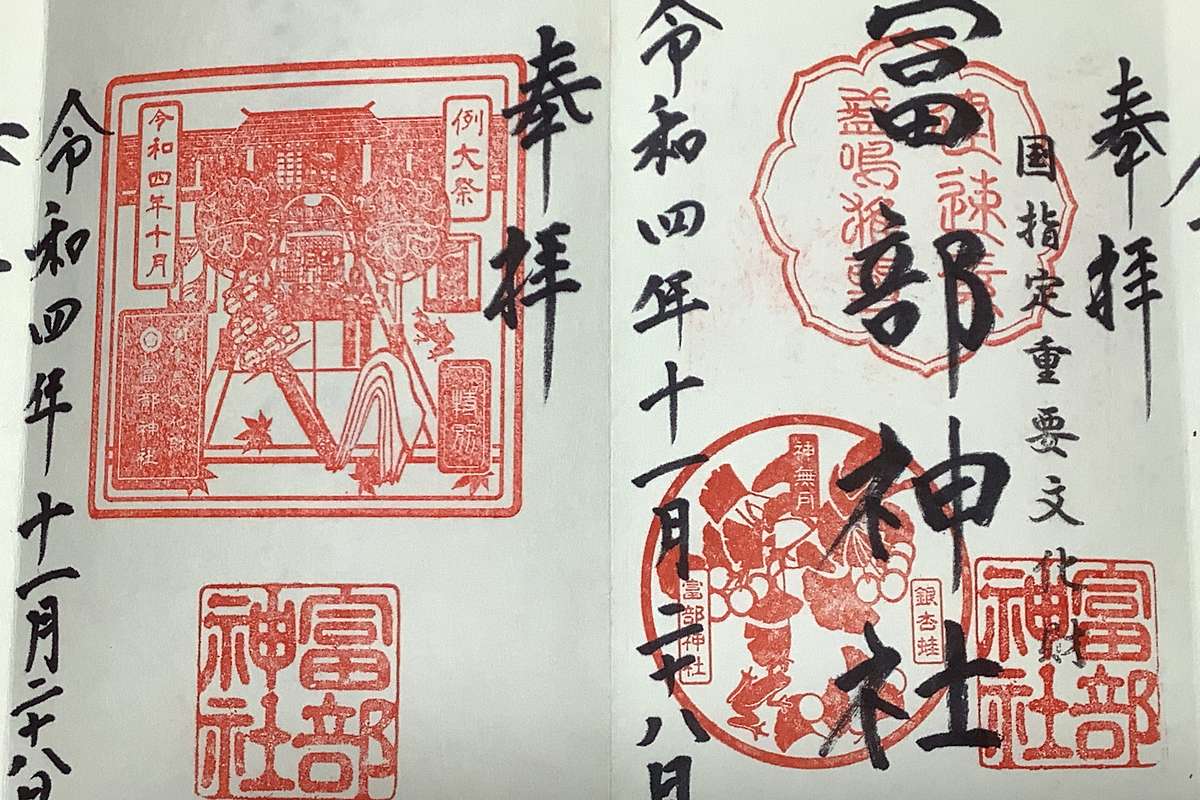 奉拝
国指定重要文化財
冨部神社
令和四年十一月二十八日
神無月
銀杏蛙
富部神社
富部
神社
奉拝
例大祭
令和四年十月
特別
富部神社
令和四年十一月二十八日
富部
神社